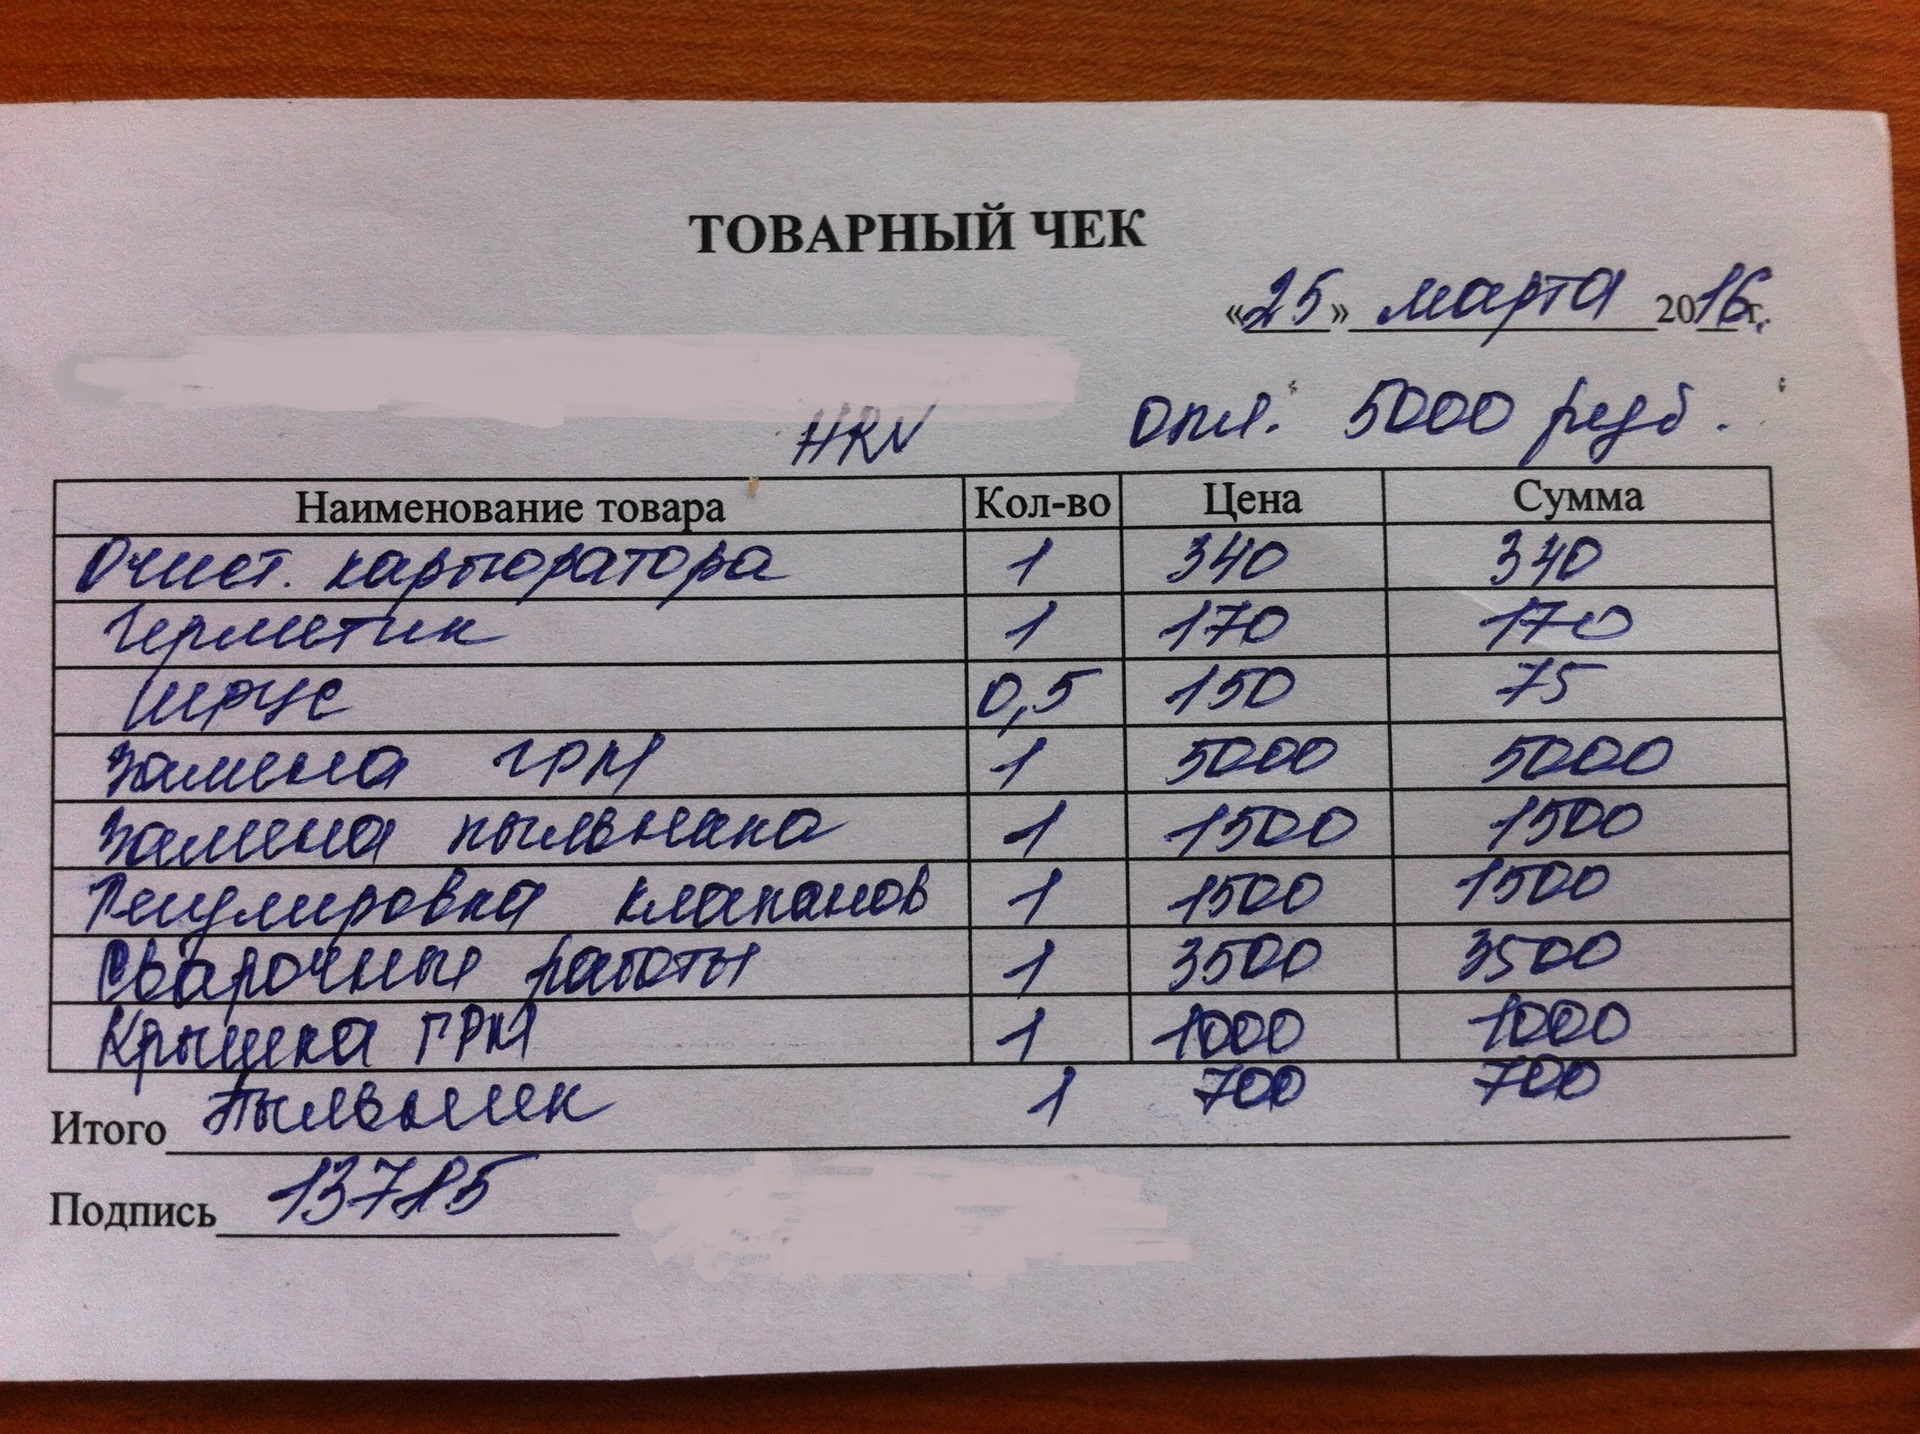 ТОВАРНЫЙ ЧЕК
«25» марта 2016г.
HRV опл. 5000 руб.
Наименование товара Кол-во Цена Сумма
Очист. карбюратора 1 340 340
Герметик 1 170 170
Шрус 0,5 150 75
Замена ГРМ 1 5000 5000
Замена пыльника 1 1500 1500
Регулировка клапанов 1 1500 1500
Сварочные работы 1 3500 3500
Крышка ГРМ 1 1000 1000
Итого Пыльник 1 700 700
Подпись 13785